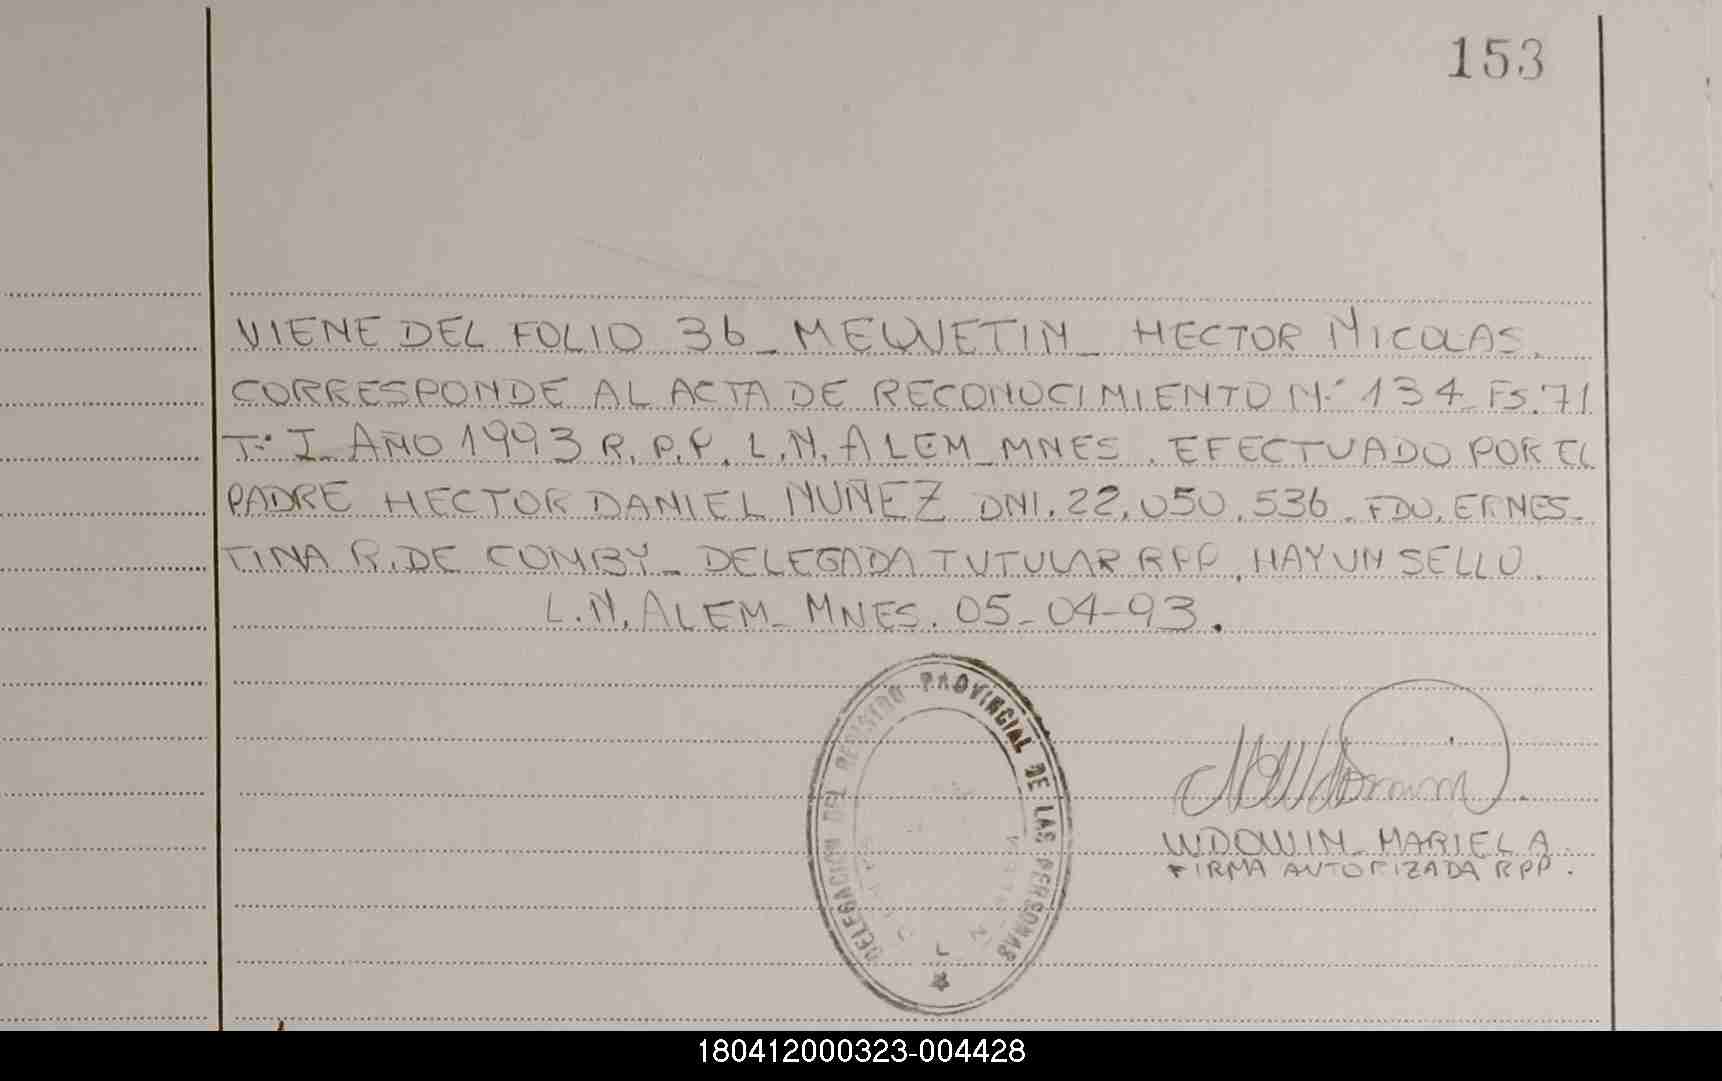 153
VIENE DEL FOLIO 36_MEWETIN_ HECTOR NICOLAS.
CORRESPONDE AL ACTA DE RECONOCIMIENTO Nº 134_FS.71
Tº I_AÑO 1993 R.P.P. L.N. ALEM_MNES. EFECTUADO POR EL
PADRE HECTOR DANIEL NUÑEZ DNI.22.050.536. FDO. ERNES-
TINA R. DE COMBY_ DELEGADA TUTULAR RPP. HAY UN SELLO.
L.N. ALEM_MNES. 05-04-93.
DELEGACION DEL REGISTRO PROVINCIAL DE LAS PERSONAS
WDOWIN_MARIELA.
FIRMA AUTORIZADA RPP.
180412000323-004428